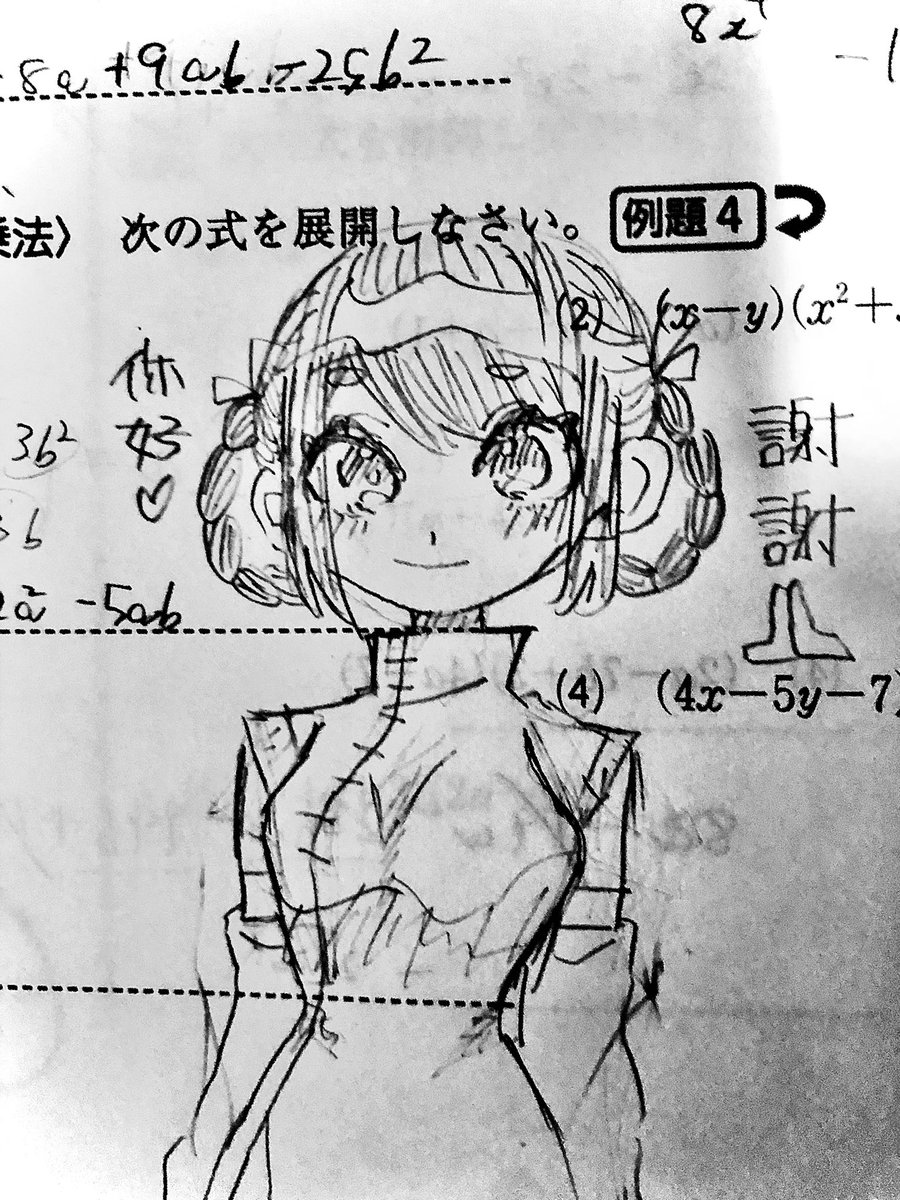 8x
-8a+9ab-25b²
乗法〉 次の式を展開しなさい。 例題4
(2) (x-y)(x²+
你好♡
謝謝
3b²
2a²-5ab
(4) (4x-5y-7)